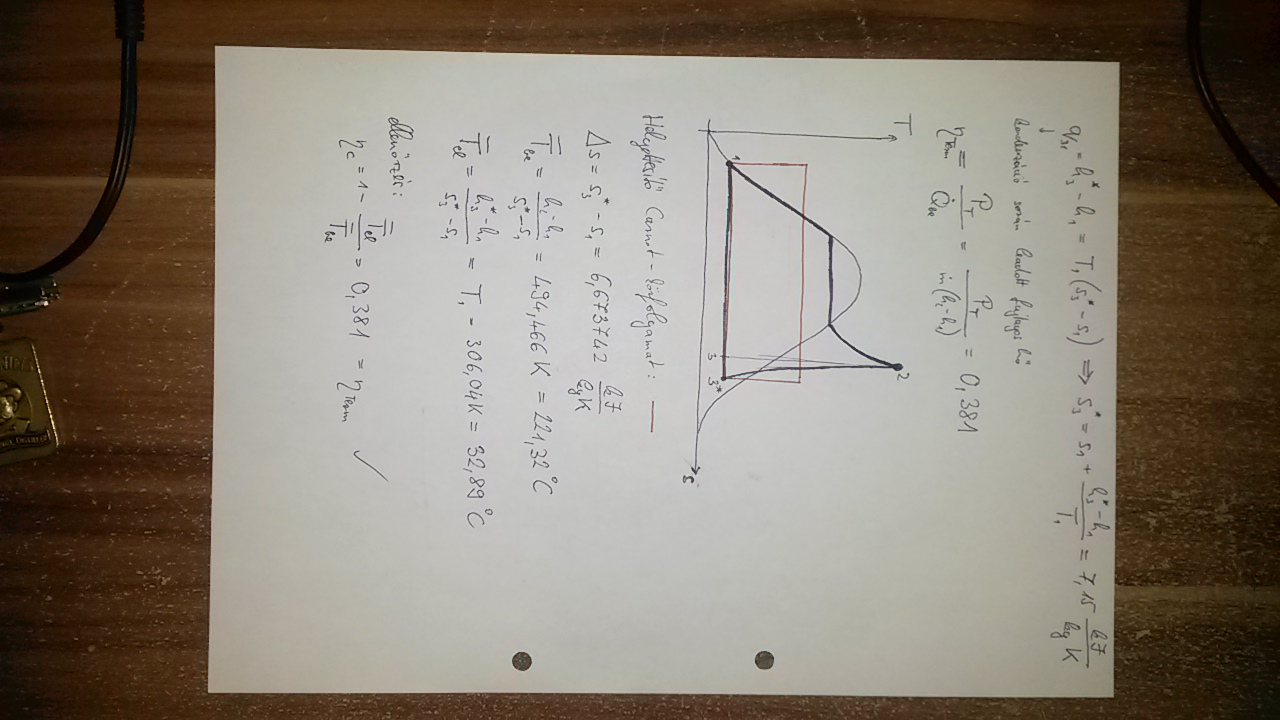 q₃₁ = h₃* - h₁ = T₁(s₃* - s₁) ⇒ s₃* = s₁ + (h₃* - h₁)/T₁ = 7,15 kJ/kgK
↓
kondenzáció során leadott fajlagos hő
η_Term = P_T/Q̇_be = P_T/ṁ(h₂-h₁) = 0,381
T
1
2
3
3*
s
Helyettesítő Carnot-körfolyamat: —
Δs = s₃* - s₁ = 6,673742 kJ/kgK
T̄_be = (h₂-h₁)/(s₃*-s₁) = 494,466 K = 221,32 °C
T̄_el = (h₃*-h₁)/(s₃*-s₁) = T₁ = 306,04 K = 32,89 °C
ellenőrzés:
η_C = 1 - T̄_el/T̄_be = 0,381 = η_Term ✓